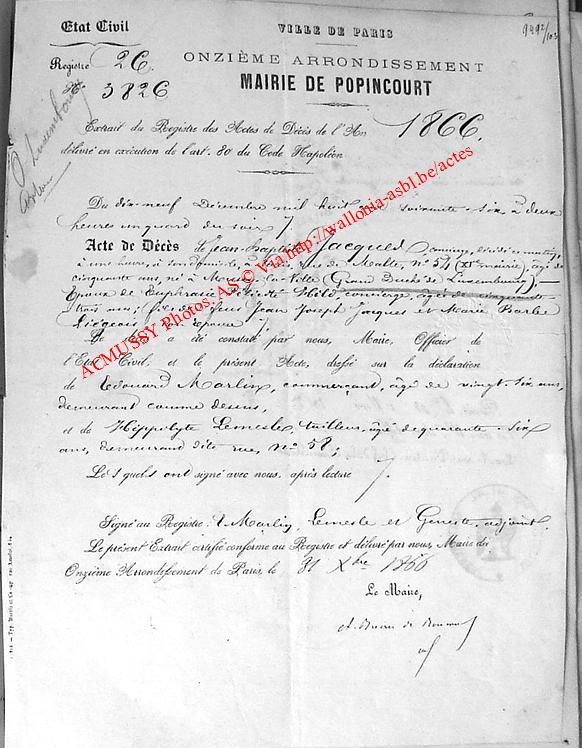 Etat Civil
VILLE DE PARIS
9492/103
Registre 26.
ONZIÈME ARRONDISSEMENT
Nº 3826
MAIRIE DE POPINCOURT
Luxembourg
Extrait du Registre des Actes de Décès de l'An 1866.
délivré en exécution de l'art. 80 du Code Napoléon
Du dix-neuf Décembre mil huit cent soixante-six à deux
heures un quart du soir
Acte de Décès de Jean Baptiste Jacques, concierge, décédé ce matin,
à une heure, à son domicile, à Paris, rue de Malte, nº 54 (XIe mairie), âgé de
cinquante ans, né à la Ville (Grand Duché de Luxembourg), —
Epoux de Euphrasie Félicité concierge, âgée de cinquante
trois ans; fils de Jean Joseph Jacques et Marie Barbe
Liégeois, son épouse
Le a été constaté par nous, Maire, Officier de
l'Etat Civil, et le présent Acte, dressé sur la déclaration
de Edouard Marlin, commerçant, âgé de vingt-six ans,
demeurant comme dessus,
et de Hippolyte Lemesle, tailleur, âgé de quarante-six
ans, demeurant dite rue, nº 58;
Lesquels ont signé avec nous, après lecture
Signé au Registre: Marlin, Lemesle et Geneste, adjoint.
Le présent Extrait certifié conforme au Registre et délivré par nous, Maire du
Onzième Arrondissement de Paris, le 31 Xbre 1866
Le Maire,
ACMUSSY Photos: AS © Via http://wallonia-asbl.be/actes